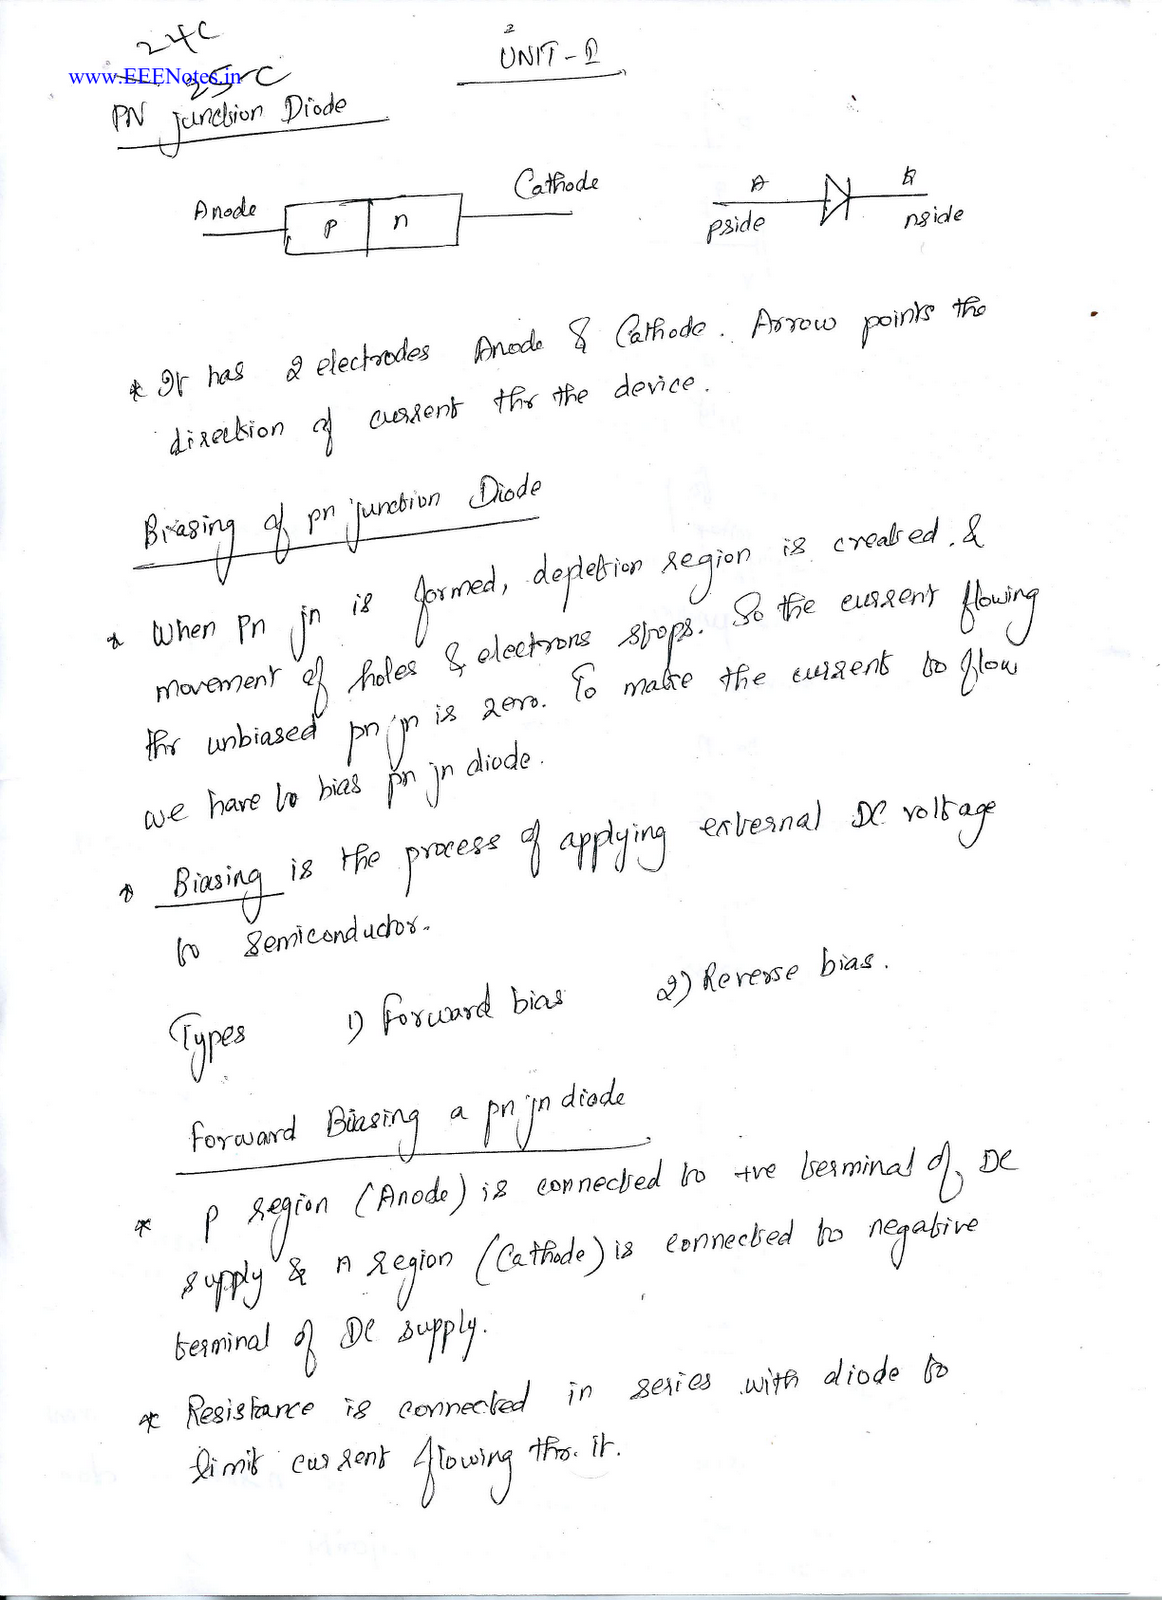 24C
2
UNIT-1
www.EEENotes.in
25C
PN junction Diode
Anode
P
n
Cathode
A
K
pside
nside
* It has 2 electrodes Anode & Cathode. Arrow points the
direction of current thr the device.
Biasing of pn junction Diode
* When Pn jn is formed, depletion region is created. &
movement of holes & electrons stops. So the current flowing
thr unbiased pn jn is zero. To make the current to flow
we have to bias pn jn diode.
* Biasing is the process of applying external DC voltage
to semiconductor.
Types 1) Forward bias 2) Reverse bias.
Forward Biasing a pn jn diode
* P region (Anode) is connected to +ve terminal of DC
supply & n region (Cathode) is connected to negative
terminal of DC supply.
* Resistance is connected in series with diode to
limit current flowing thr. it.